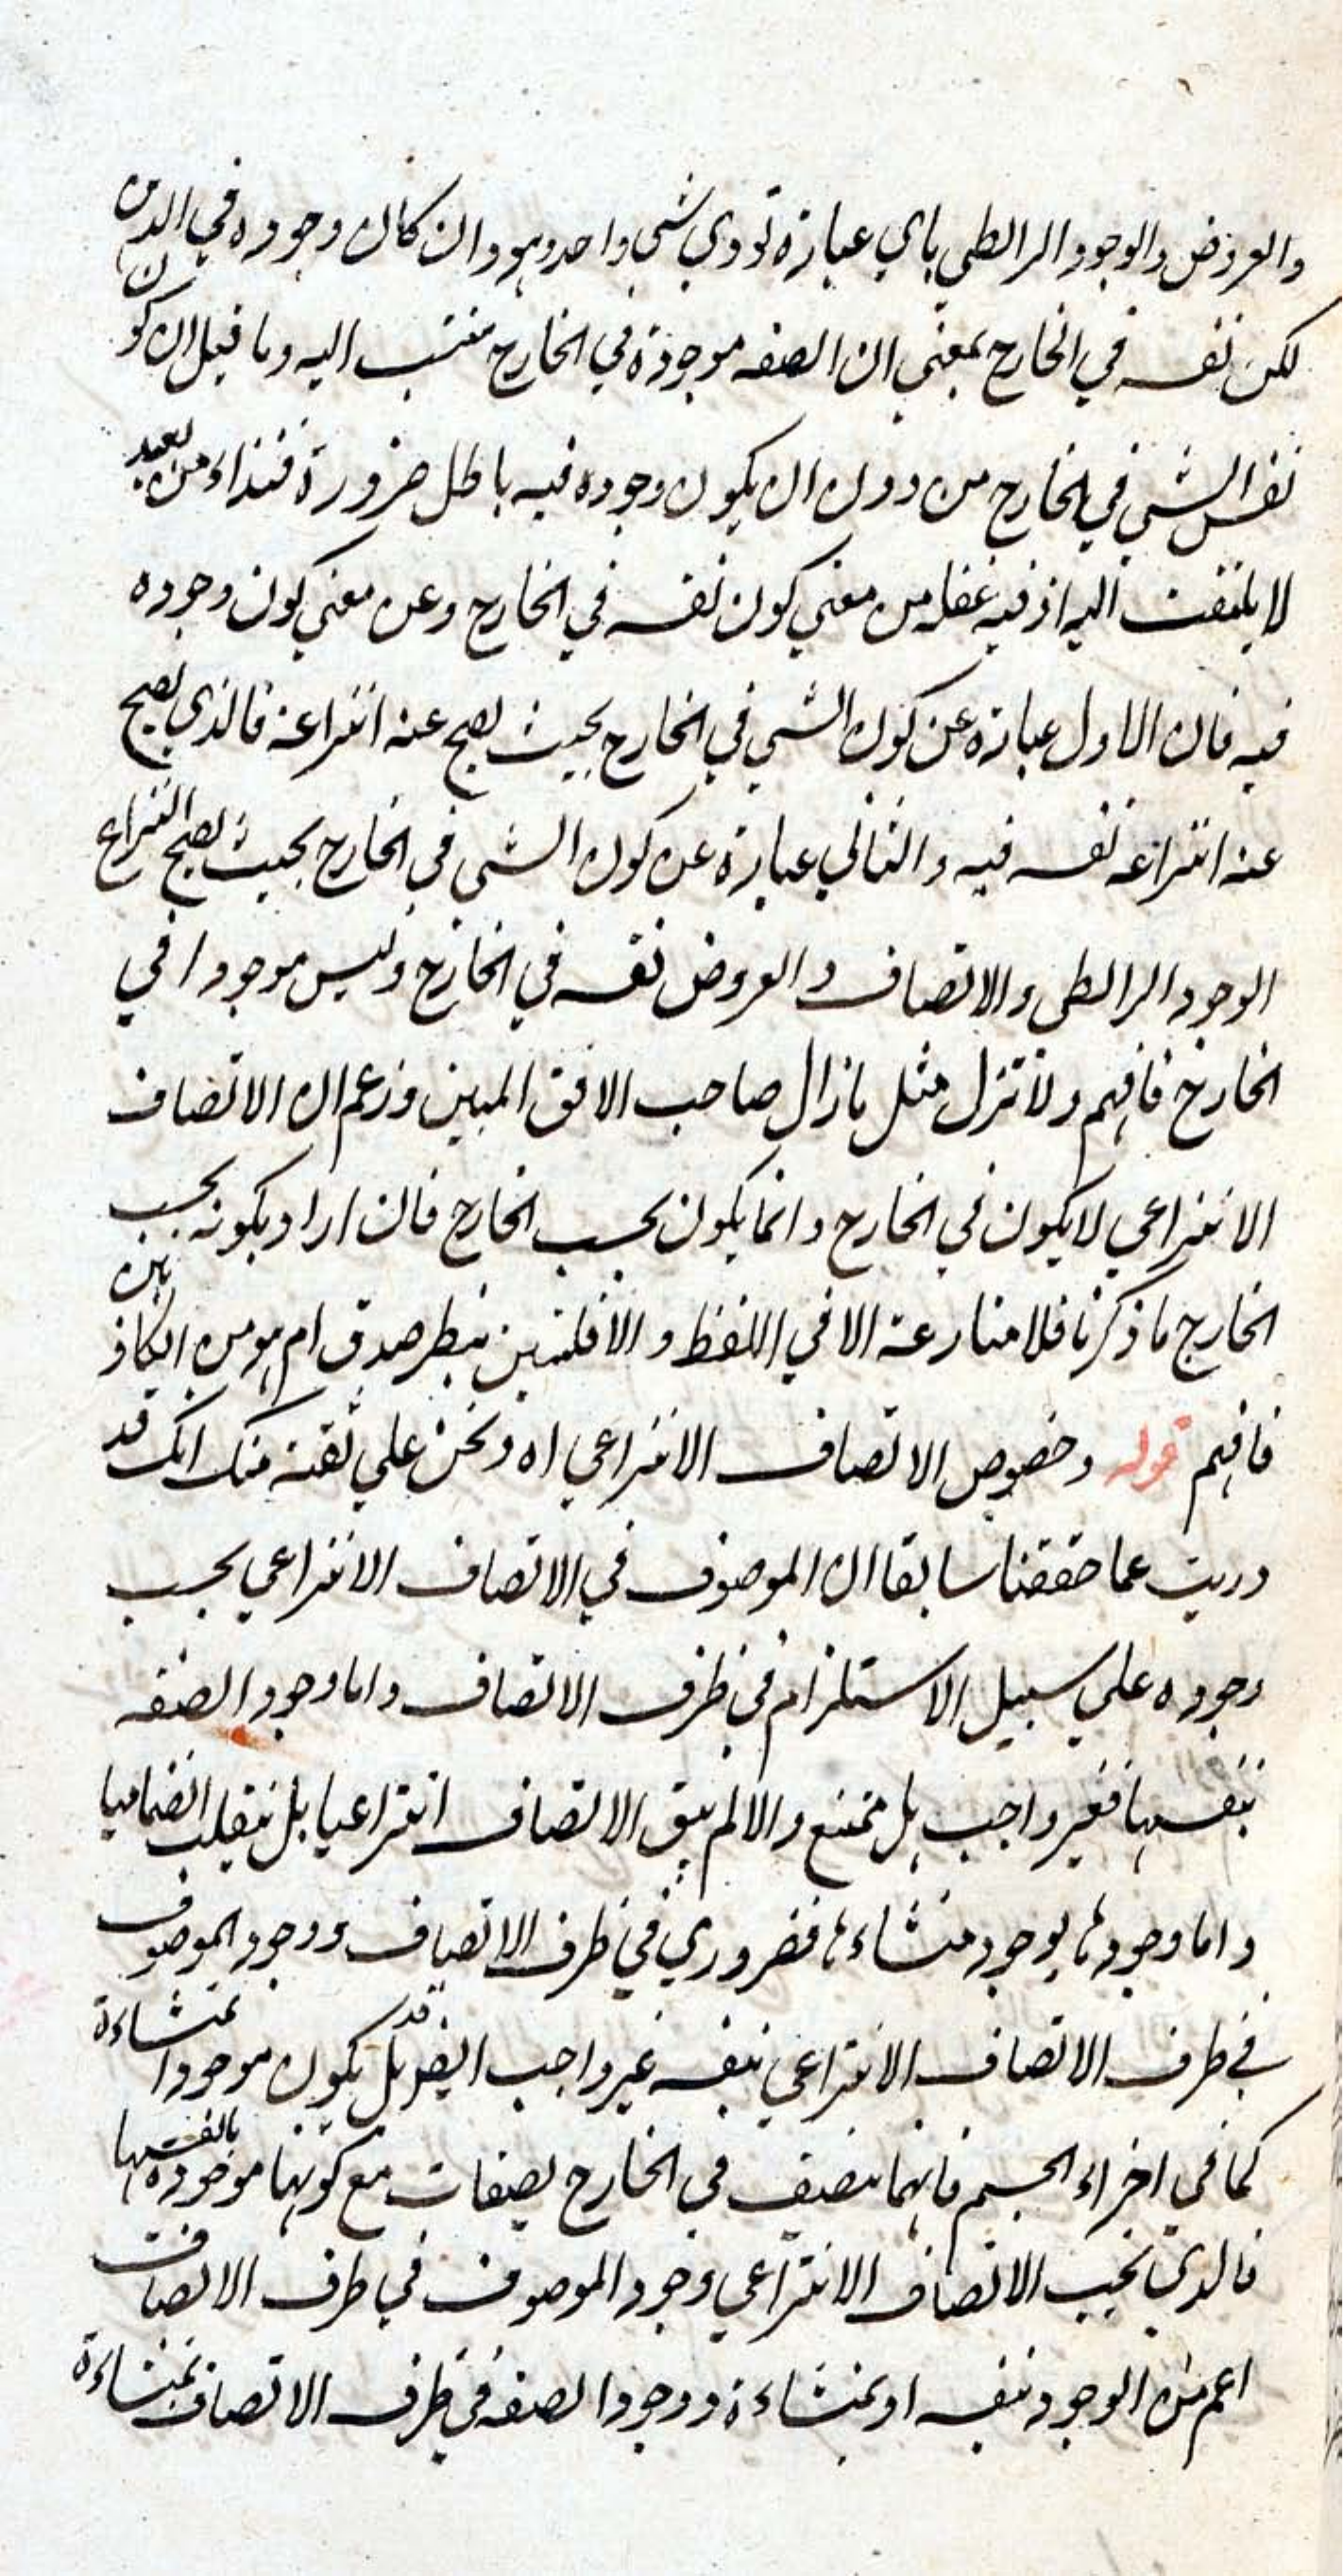 والعروض والوجود الرابطي باي عبارة تودي شي واحد وهو وان كان وجوده في الذهن
لكن نفسه في الخارج بمعني ان الصفه موجودة في الخارج منتسب اليه وما قيل ان كون
نفس الشي في الخارج من دون ان يكون وجوده فيه باطل ضرورة فنداء من بعيد
لا يلتفت اليه اذ فيه غفله من معني كون نفسه في الخارج وعن معني كون وجوده
فيه فان الاول عبارة عن كون الشي في الخارج بحيث يصح عنه انتزاعه فالذي يصح
عنه انتزاعه نفسه فيه والثاني عبارة عن كون الشي في الخارج بحيث يصح انتزاع
الوجود الرابطي والاتصاف والعروض نفسه في الخارج وليس موجودا في
الخارج فافهم ولا تزل مثل ما زال صاحب الافق المبين وزعم ان الاتصاف
الانتزاعي لا يكون في الخارج وانما يكون بحسب الخارج فان اراد بكونه بحسب
الخارج ما ذكرنا فلا منازعة الا في اللفظ والا فلننظر صدق ام هو من الكاذبين
فافهم قوله وخصوص الاتصاف الانتزاعي اه ونحن علي ثقة منك انك قد
دريت عما حققنا سابقا ان الموصوف في الاتصاف الانتزاعي يجب
وجوده علي سبيل الاستلزام في ظرف الاتصاف واما وجود الصفه
بنفسها فغير واجب بل ممتنع والا لم يبق الاتصاف انتزاعيا بل ينقلب انضماميا
واما وجودها بوجود منشاءها فضروري في ظرف الاتصاف ووجود الموصوف
في ظرف الاتصاف الانتزاعي بنفسه غير واجب ايضا بل قد يكون موجودا بمنشاءة
كما في اجزاء الجسم فانهما تتصف في الخارج بصفات مع كونهما موجودة بانفسها
فالذي يجب الاتصاف الانتزاعي وجود الموصوف في ظرف الاتصاف
اعم من الوجود بنفسه او بمنشاءة ووجود الصفه في ظرف الاتصاف بمنشاءة